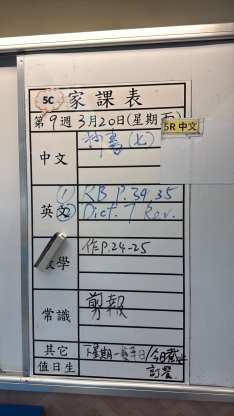 5C 家課表
第9週3月20日(星期五)
5R 中文
中文
英文 ① RB P.34-35
② Dict. 7 Rev.
數學 作P.24-25
常識 剪報
其它 下星期一
值日生